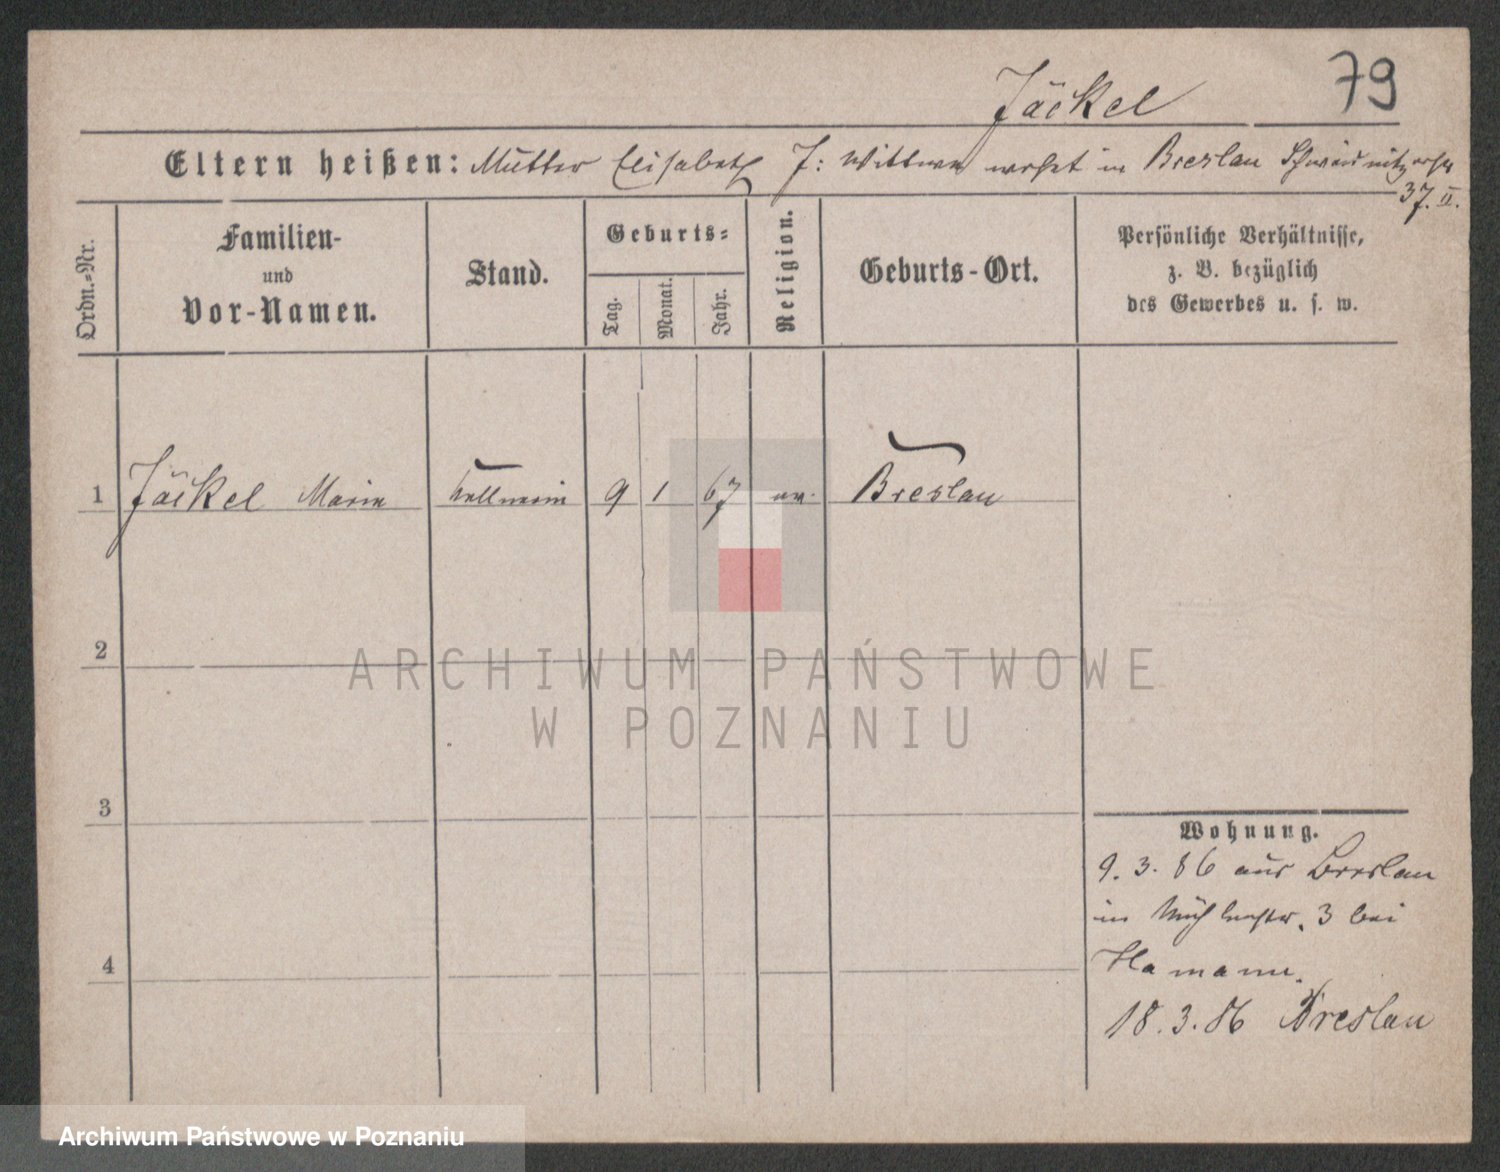 79
Jäckel
Eltern heißen: Mutter Elisabeth J: Wittwe wohnt in Breslau
37. II.
Ordn.-Nr.
Familien-
und
Vor-Namen.
Stand.
Geburts-
Tag.
Monat.
Jahr.
Religion.
Geburts-Ort.
Persönliche Verhältnisse,
z. B. bezüglich
des Gewerbes u. s. w.
1 Jäckel Marie Kellnerin 9 1 67 ev. Breslau
2
ARCHIWUM PAŃSTWOWE
W POZNANIU
3
Wohnung.
9. 3. 86 aus Breslau
in Mühlenstr. 3 bei
Hamann.
4
18. 3. 86 Breslau
Archiwum Państwowe w Poznaniu